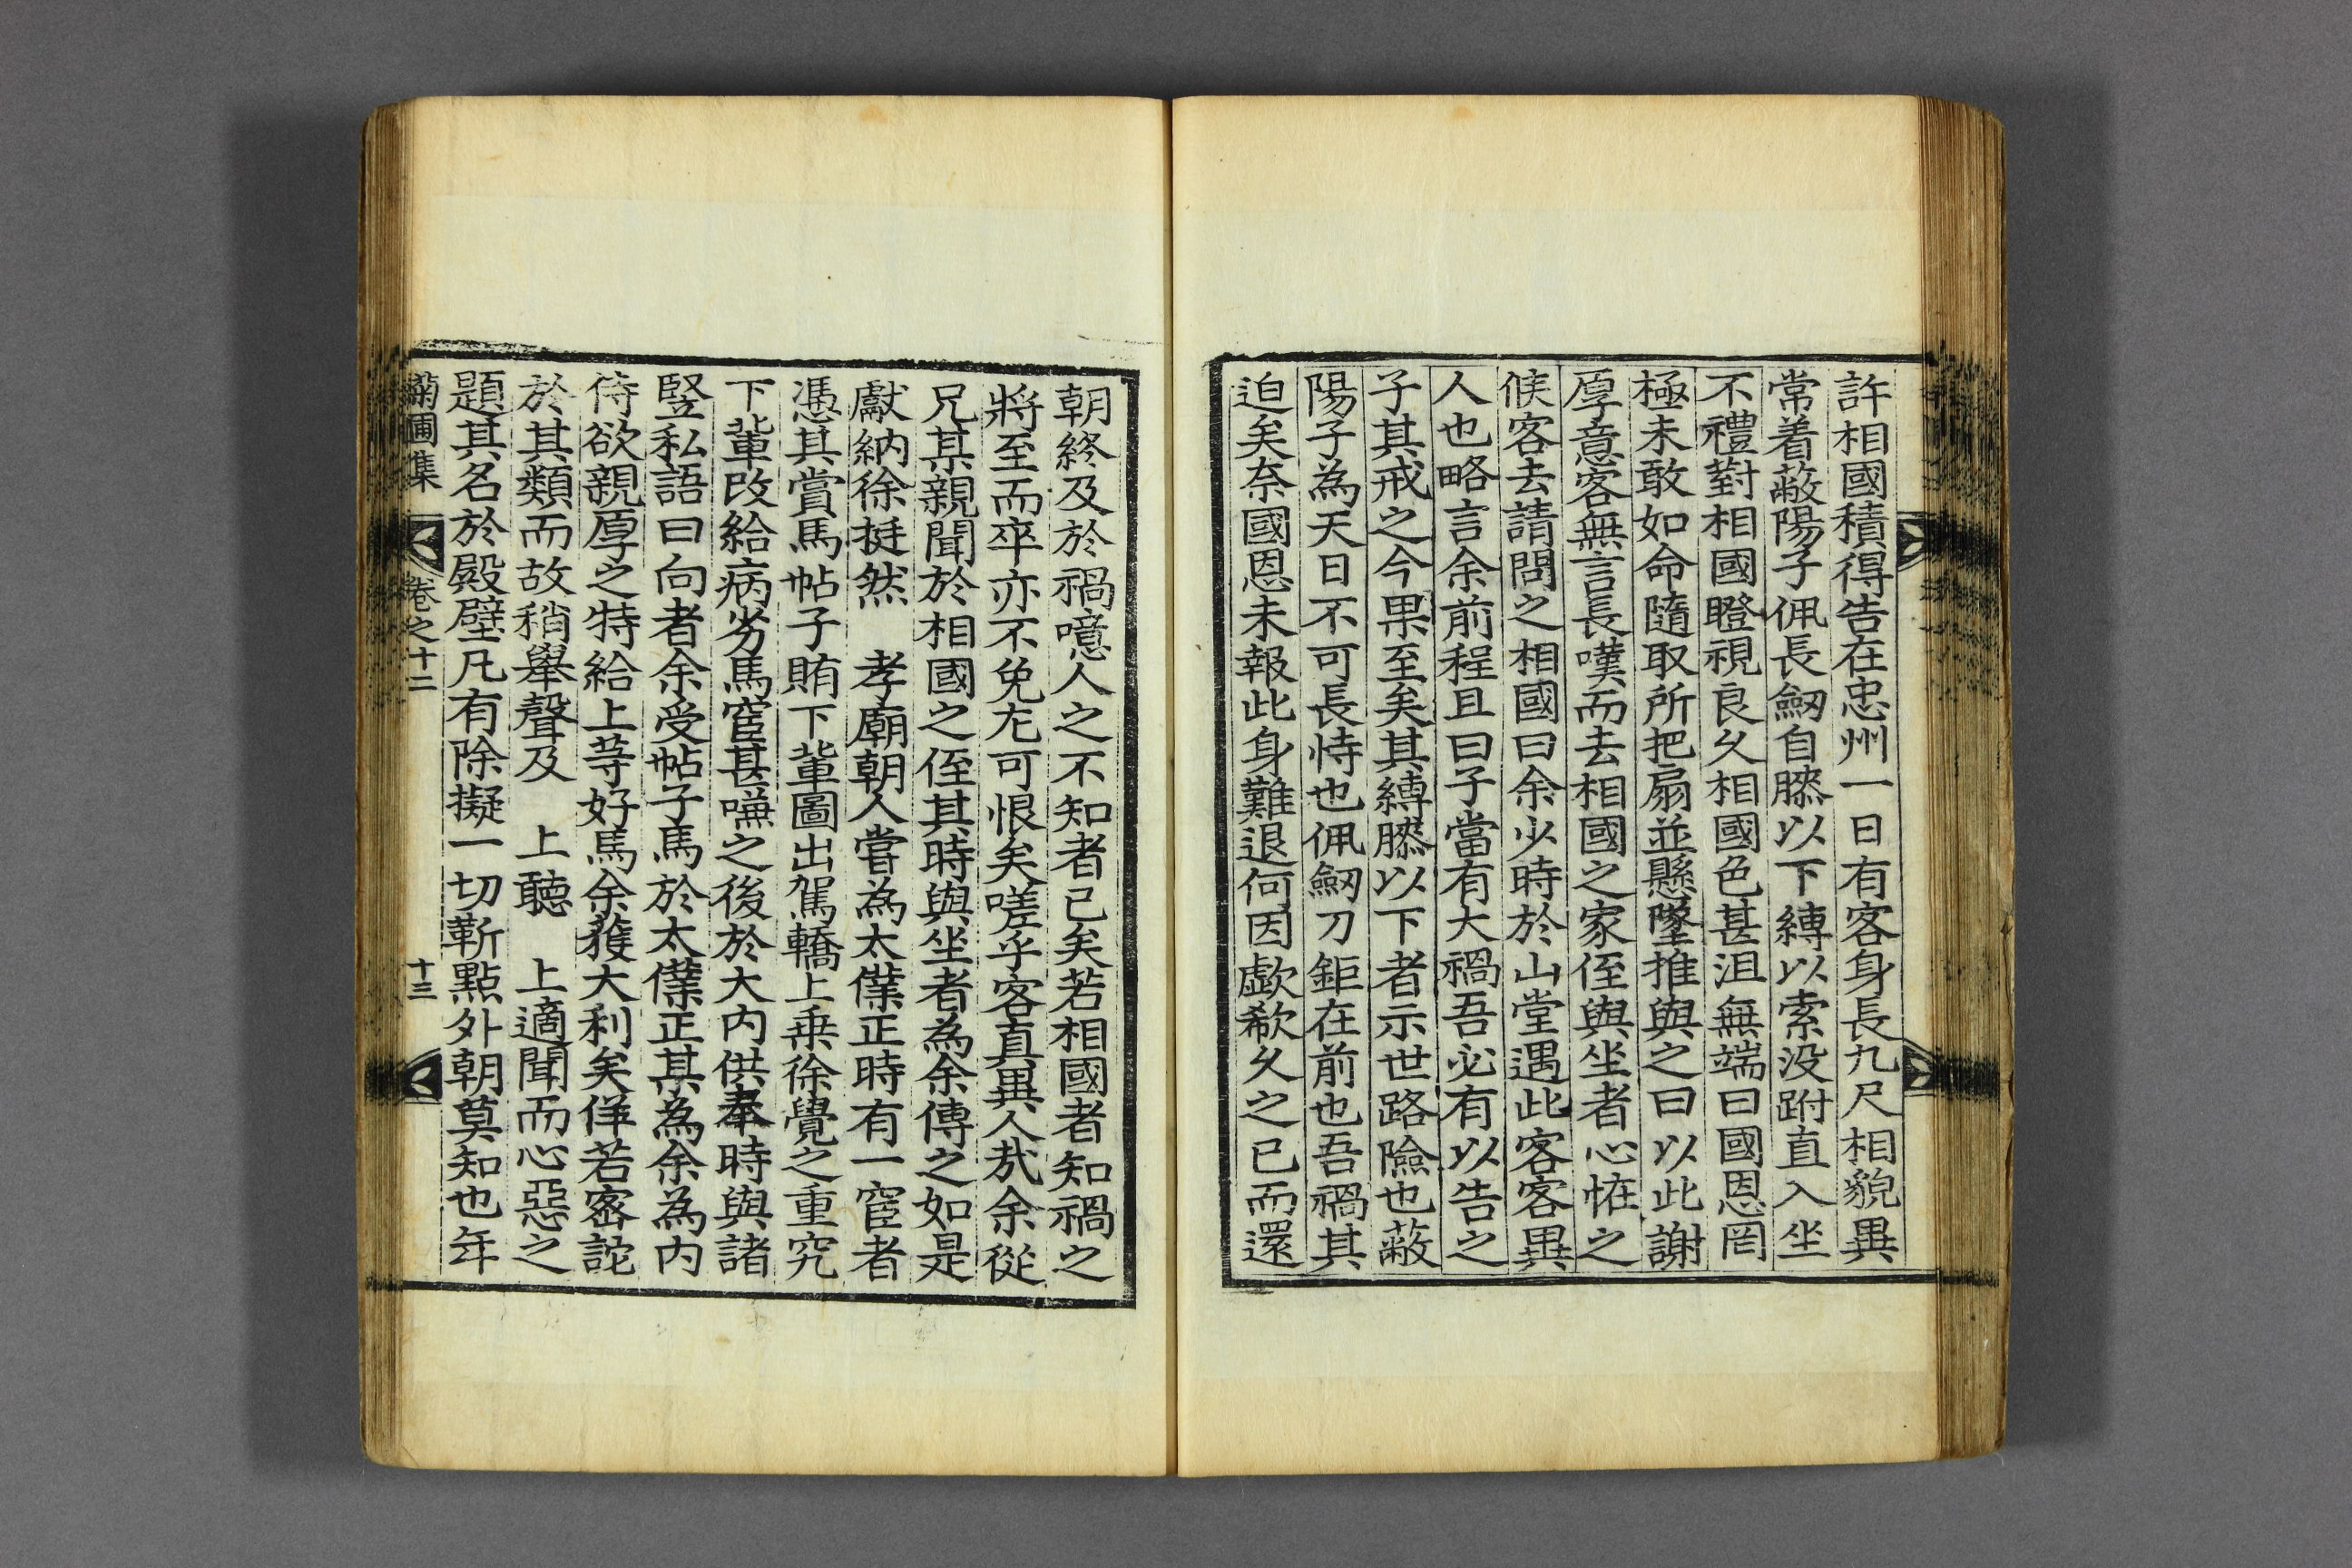 許相國積得告在忠州一日有客身長九尺相貌異
常着蔽陽子佩長劒自膝以下縛以索没跗直入坐
不禮對相國瞪視良久相國色甚沮無端曰國恩罔
極未敢如命隨取所把扇並懸墜推與之曰以此謝
厚意客無言長嘆而去相國之家侄與坐者心恠之
候客去請問之相國曰余少時於山堂遇此客客異
人也略言余前程且曰子當有大禍吾必有以告之
子其戒之今果至矣其縛膝以下者示世路險也蔽
陽子為天日不可長恃也佩劒刀鉅在前也吾禍其
迫矣奈國恩未報此身難退何因歔欷久之已而還
朝終及於禍噫人之不知者已矣若相國者知禍之
將至而卒亦不免尢可恨矣嗟乎客真異人㢤余從
兄某親聞於相國之侄其時與坐者為余傳之如是
獻納徐挺然　孝廟朝人嘗為太僕正時有一宦者
憑其賞馬帖子賄下軰圖出駕轎上乗徐覺之重究
下軰改給病劣馬宦甚嗛之後於大内供奉時與諸
竪私語曰向者余受帖子馬於太僕正其為余為内
侍欲親厚之特給上等好馬余獲大利矣佯若宻詑
於其類而故稍舉聲及　上聽　上適聞而心惡之
題其名於殿壁凡有除擬一切靳點外朝莫知也年
菊圃集　卷之十二　十三